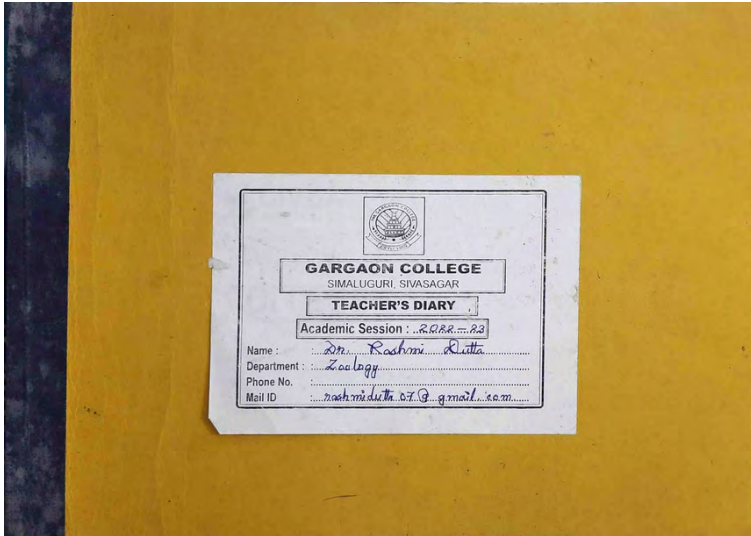 GARGAON COLLEGE
SIMALUGURI, SIVASAGAR
TEACHER'S DIARY
Academic Session : 2022-23
Name : Dr. Rashmi Dutta
Department : Zoology
Phone No. :
Mail ID : rashmidutta07@gmail.com